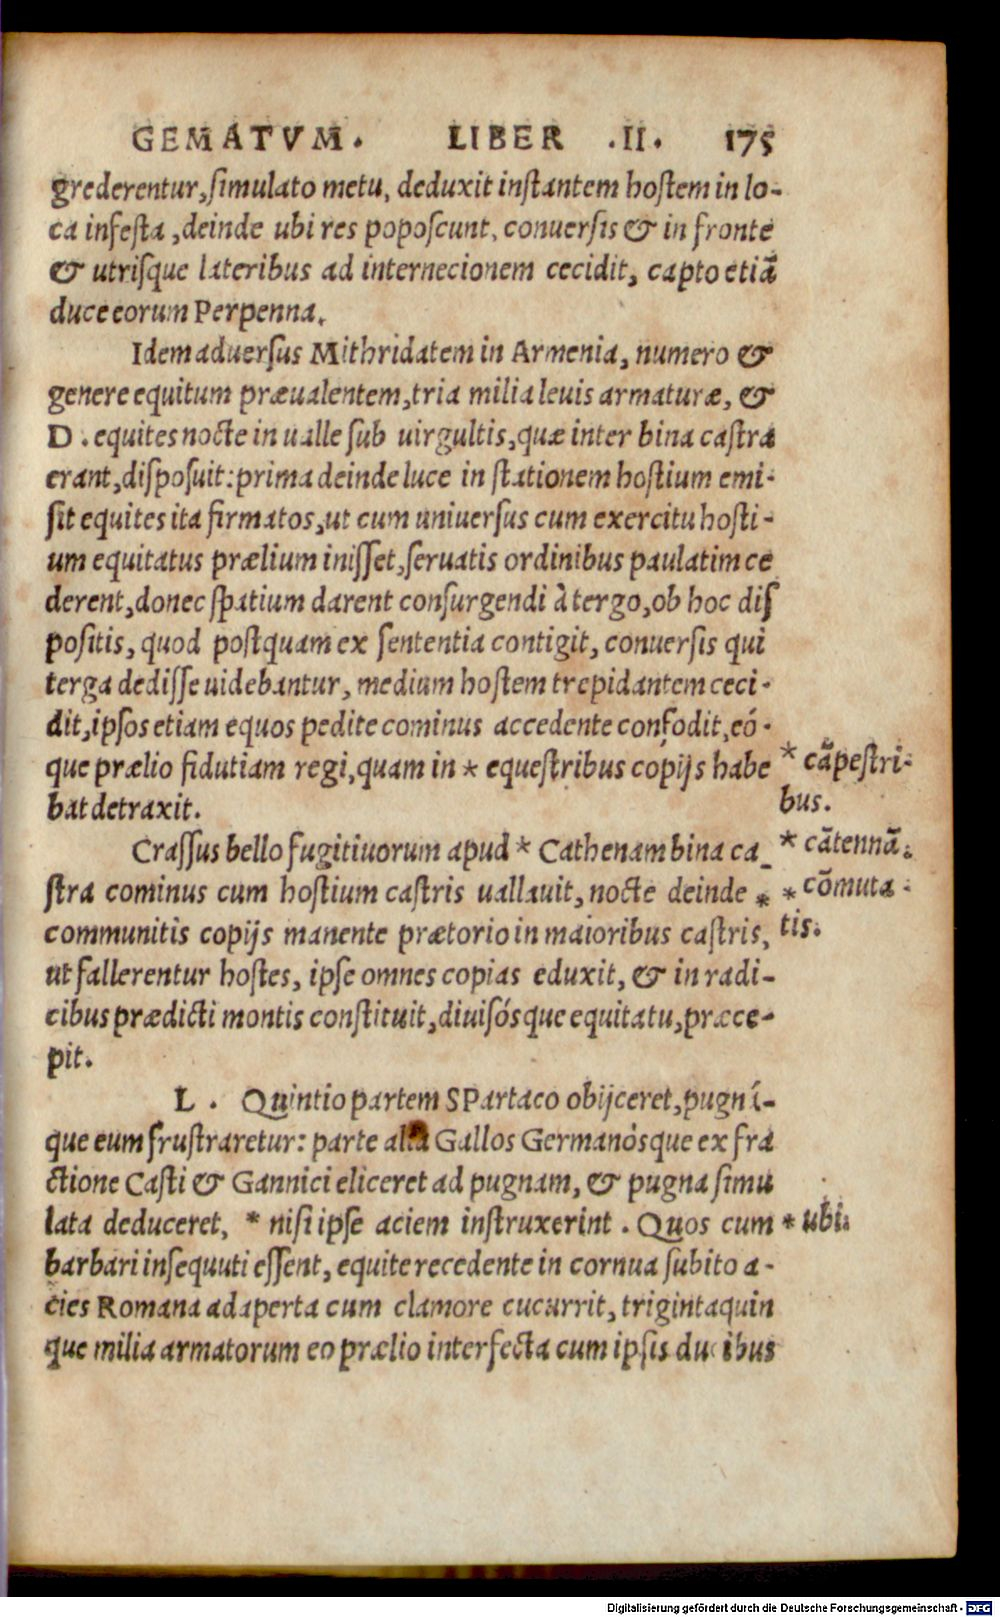 GEMATVM. LIBER .II. 175
grederentur, simulato metu, deduxit instantem hostem in lo-
ca infesta, deinde ubi res poposcunt, conuersis & in fronte
& utrisque lateribus ad internecionem cecidit, capto etiā
duce eorum Perpenna.
Idem aduersus Mithridatem in Armenia, numero &
genere equitum præualentem, tria milia leuis armaturæ, &
D. equites nocte in ualle sub uirgultis, quæ inter bina castra
erant, disposuit: prima deinde luce in stationem hostium emi-
sit equites ita firmatos, ut cum uniuersus cum exercitu hosti-
um equitatus prælium inisset, seruatis ordinibus paulatim ce
derent, donec spatium darent consurgendi à tergo, ob hoc dis
positis, quod postquam ex sententia contigit, conuersis qui
terga dedisse uidebantur, medium hostem trepidantem ceci-
dit, ipsos etiam equos pedite cominus accedente confodit, eó-
que prælio fidutiam regi, quam in * equestribus copijs habe
* cāpestri-
bus.
bat detraxit.
Crassus bello fugitiuorum apud * Cathenam bina ca_
* cātennā.
stra cominus cum hostium castris uallauit, nocte deinde *
* cōmuta-
tis.
communitis copijs manente prætorio in maioribus castris,
ut fallerentur hostes, ipse omnes copias eduxit, & in radi-
cibus prædicti montis constituit, diuisósque equitatu, præce-
pit.
L. Quintio partem SPartaco obijceret, pugná-
que eum frustraretur: parte alia Gallos Germanósque ex fra
ctione Casti & Gannici eliceret ad pugnam, & pugna simu
lata deduceret, * nisi ipse aciem instruxerint. Quos cum
* ubi.
barbari insequuti essent, equite recedente in cornua subito a-
cies Romana adaperta cum clamore cucurrit, trigintaquin
que milia armatorum eo prælio interfecta cum ipsis ducibus
Digitalisierung gefördert durch die Deutsche Forschungsgemeinschaft - DFG